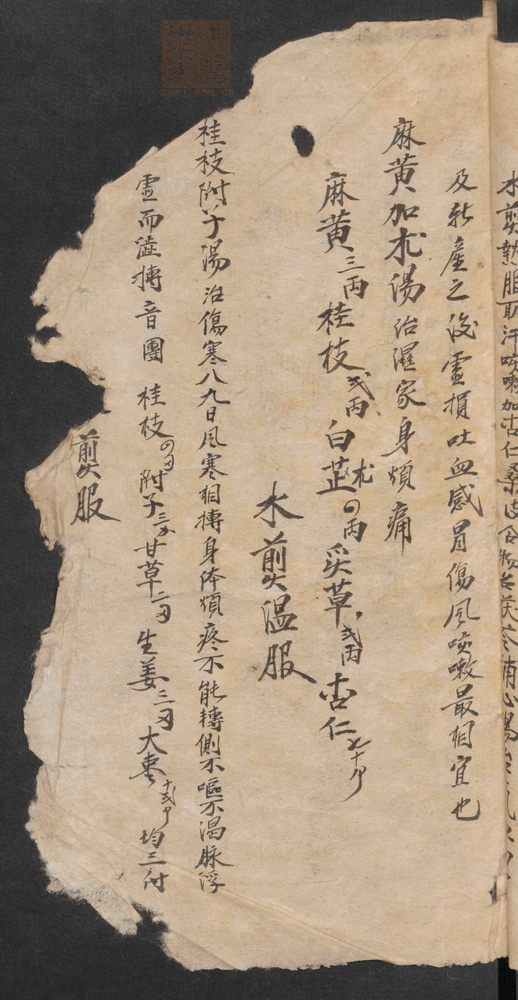 水煎熱服取汗咳嗽加杏仁桑皮
及新產之後虛損吐血感冒傷風咳嗽最相宜也
麻黃加朮湯治濕家身煩痛
麻黃三両桂枝弍両白芷朮四両炙草弍両杏仁七十个
水煎温服
桂枝附子湯治傷寒八九日風寒相搏身体煩疼不能轉側不嘔不渴脉浮
虛而澁搏音團 桂枝 附子三 甘草二 生姜三 大棗十弍个 均三付
煎服